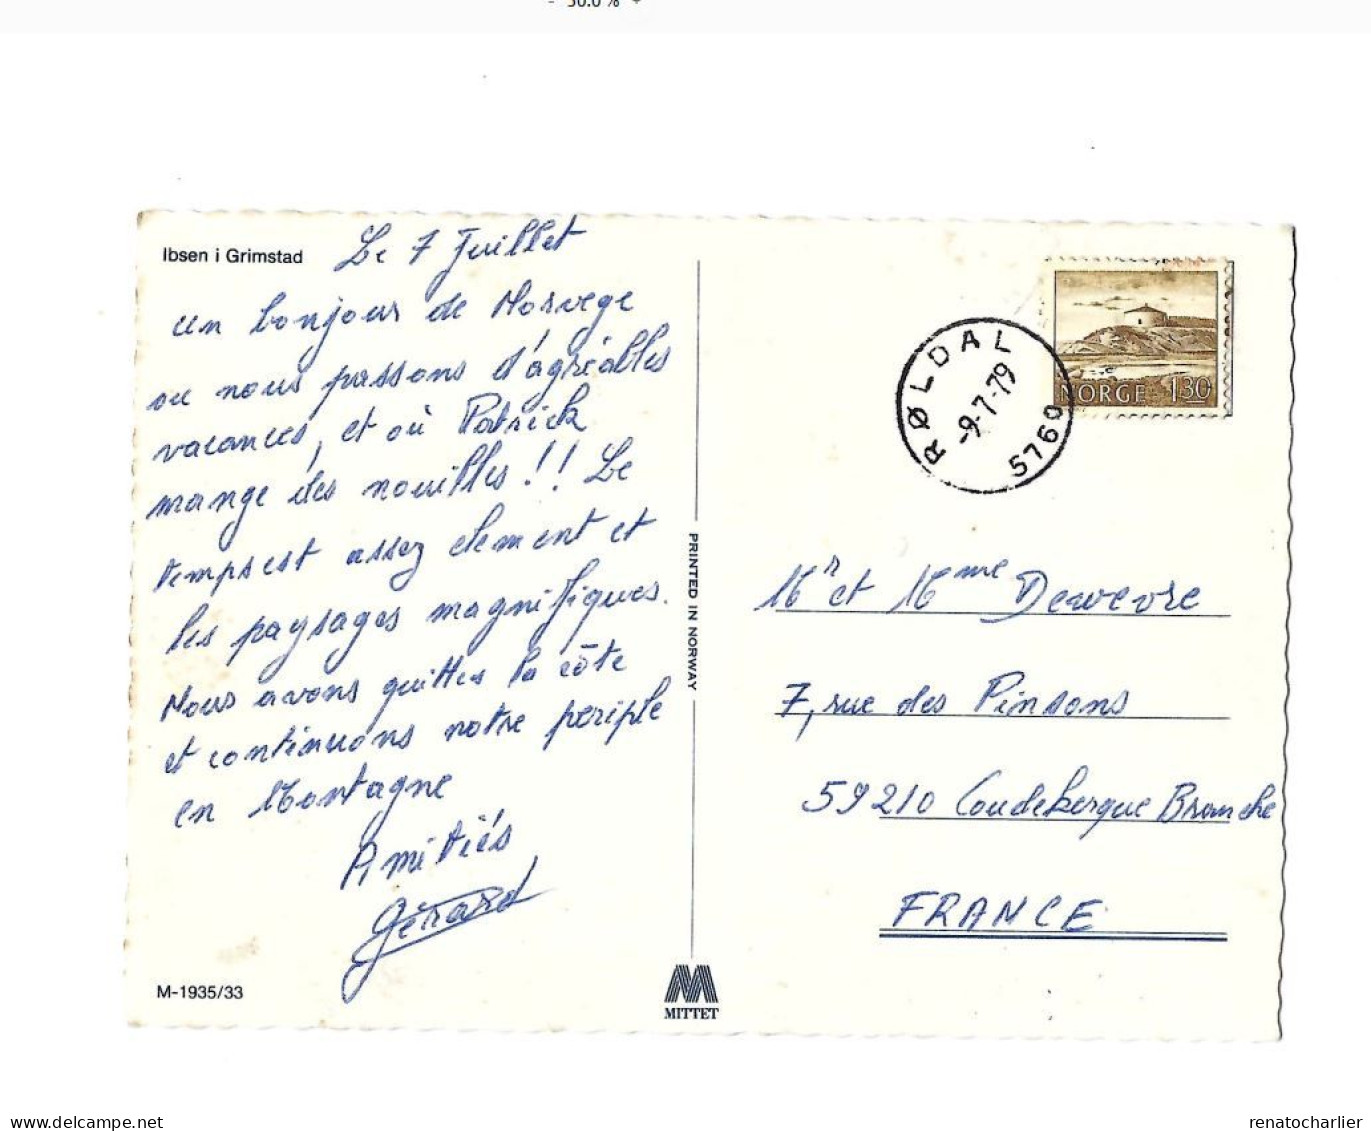 Ibsen i Grimstad
Le 7 Juillet
un bonjour de Norvege
ou nous passons d'agréables
vacances, et où Patrick
mange des nouilles!! Le
temps est assez clement et
les paysages magnifiques.
Nous avons quittes la côte
et continuons notre periple
en Montagne
Amitiés
Gérard
M-1935/33
PRINTED IN NORWAY
MITTET
NORGE 130
RØLDAL
-9-7-79
5760
Mr et Mme Dewevre
7, rue des Pinsons
59210 Coudekerque Branche
FRANCE
www.delcampe.net
renatocharlier